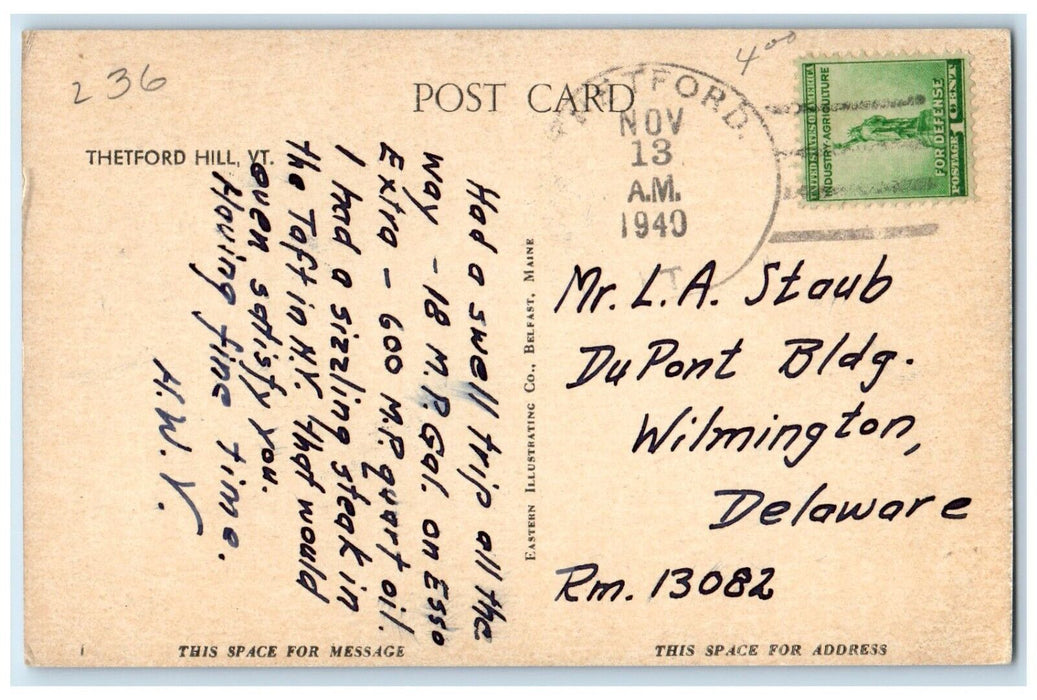 236
4⁰⁰
POST CARD
THETFORD HILL, VT.
THETFORD
NOV
13
A.M.
1940
VT.
UNITED STATES OF AMERICA
INDUSTRY-AGRICULTURE
FOR DEFENSE
POSTAGE 1 CENT
Had a swell trip all the
way - 18 M.P.Gal. on Esso
Extra - 600 M.P. quart oil.
I had a sizzling steak in
the Taft in N.Y. that would
even satisfy you.
Having fine time.
H.W.V.
EASTERN ILLUSTRATING CO., BELFAST, MAINE
Mr. L.A. Staub
DuPont Bldg.
Wilmington,
Delaware
Rm. 13082
THIS SPACE FOR MESSAGE
THIS SPACE FOR ADDRESS